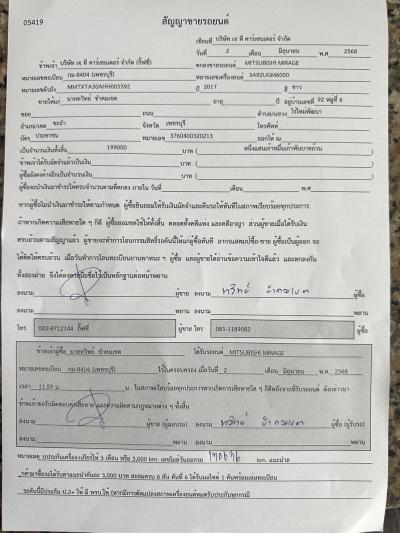 05419
สัญญาขายรถยนต์
เขียนที่ บริษัท เจ ที คาร์เซนเตอร์ จำกัด
วันที่ 2 เดือน มิถุนายน พ.ศ 2568
ข้าพเจ้า บริษัท เจ ที คาร์เซนเตอร์ จำกัด (กิ๊ฟซี่) ตกลงขายรถยนต์ MITSUBISHI MIRAGE
หมายเลขทะเบียน กม-8404 (เพชรบุรี) หมายเลขเครื่องยนต์ 3A92UGM6000
หมายเลขตัวถัง MMTXTA30AHH003392 ปี 2017 สี ขาว
ขายให้แก่ นายทวีทย์ ขำคมเขต อายุ ปี อยู่บ้านเลขที่ 92 หมู่ที่ 6
ซอย ถนน ตำบล/แขวง ไร่ใหม่พัฒนา
อำเภอ/เขต ชะอำ จังหวัด เพชรบุรี โทรศัพท์
บัตร ประชาชน หมายเลข 3760400320213 ออกให้ ณ
เป็นจำนวนเงินทั้งสิ้น 199000 บาท ( หนึ่งแสนเก้าหมื่นเก้าพันบาทถ้วน )
ข้าพเจ้าได้รับมัดจำแล้วเป็นเงิน บาท ( )
ผู้ซื้อยังคงค้างอีกเป็นจำนวนเงิน บาท ( )
ผู้ซื้อจะนำเงินมาชำระให้ครบจำนวนตามที่ตกลง ภายใน วันที่ เดือน พ.ศ
หากผู้ซื้อไม่นำเงินมาชำระให้ตามกำหนด ผู้ซื้อยินยอมให้ริบเงินมัดจำและคืนรถให้ทันทีในสภาพเรียบร้อยทุกประการ
ถ้าหากเกิดความเสียหายใด ๆ ก็ดี ผู้ซื้อยอมชดใช้ให้ทั้งสิ้น ตลอดทั้งคดีแพ่ง และคดีอาญา ส่วนผู้ขายเมื่อได้รับเงิน
ครบถ้วนตามสัญญาแล้ว ผู้ขายจะทำการโอนกรรมสิทธิ์รถคันนี้ให้แก่ผู้ซื้อทันที อากรแสตมป์ซื้อ-ขาย ผู้ซื้อเป็นผู้ออก จะ
ได้คิดให้ครบถ้วน เมื่อวันทำการโอนทะเบียนยานพาหนะ ๆ ผู้ซื้อ และผู้ขายได้อ่านข้อความเข้าใจดีแล้ว และตกลงกัน
ทั้งสองฝ่าย จึงได้ลงลายมือชื่อไว้เป็นหลักฐานต่อหน้าพยาน
ลงนาม ผู้ขาย ลงนาม ทวีทย์ ขำคมเขต ผู้ซื้อ
ลงนาม พยาน ลงนาม พยาน
โทร 082-6712144 กิ๊ฟซี่ ผู้ขาย โทร 081-1189082 ผู้ซื้อ
ข้าพเจ้าผู้ซื้อ นายทวีทย์ ขำคมเขต ได้รับรถยนต์ MITSUBISHI MIRAGE
หมายเลขทะเบียน กม-8404 (เพชรบุรี) ไว้ในครอบครอง เมื่อวันที่ 2 เดือน มิถุนายน พ.ศ. 2568
เวลา 11.59 น. น. ในสภาพเรียบร้อยทุกประการหากเกิดการเสียหายใด ๆ ก็ดีหลังจากที่รับรถยนต์ ดังกล่าวมา
ข้าพเจ้าขอรับผิดชอบความเสียหาย และความผิดตามกฎหมายต่าง ๆ ทั้งสิ้น
ลงนาม ผู้ขาย (ผู้มอบรถ) ลงนาม ทวีทย์ ขำคมเขต ผู้ซื้อ (ผู้รับรถ)
ลงนาม พยาน ลงนาม พยาน
หมายเหตุ รับประกันเครื่อง+เกียร์ให้ 3 เดือน หรือ 3,000 km. เลขไมล์วันออกรถ 190636 km. แนะนำล
ูกค้ามาซื้อรถได้รับค่าแนะนำคันละ 3,000 บาท สะสมครบ 6 คัน คันที่ 6 ได้รับมอไซค์ 1 คันพร้อมเล่มทะเบียน
รถคันนี้มีประกัน ป.2+ ให้ มี พรบ.ให้ (หากมีการดัดแปลงสภาพเครื่องยนต์หมดรับประกันทุกกรณี